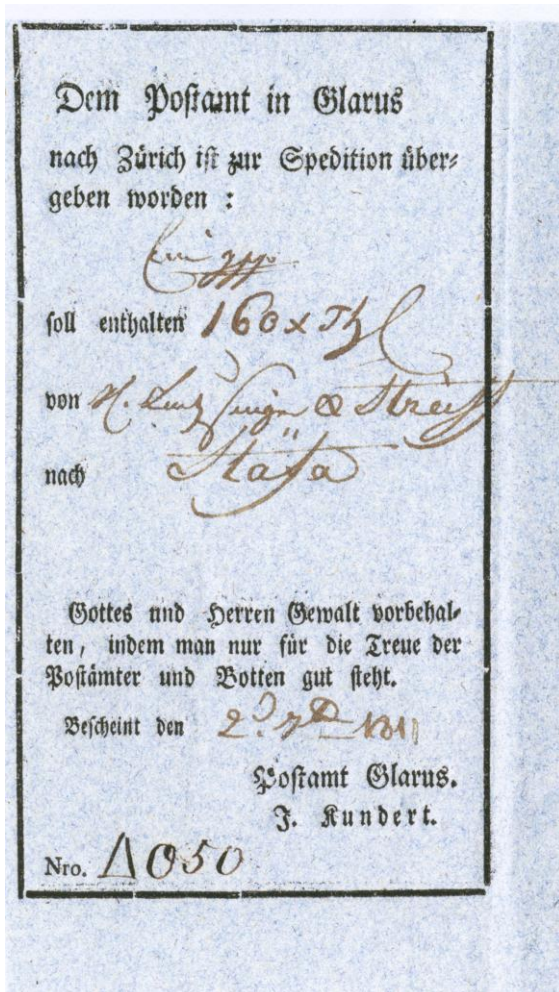 Dem Postamt in Glarus
nach Zürich ist zur Spedition über-
geben worden :
soll enthalten 160
von & Streiff
nach Stäfa
Gottes und Herren Gewalt vorbehal-
ten, indem man nur für die Treue der
Postämter und Botten gut steht.
Bescheint den
Postamt Glarus.
J. Kundert.
Nro. 1050